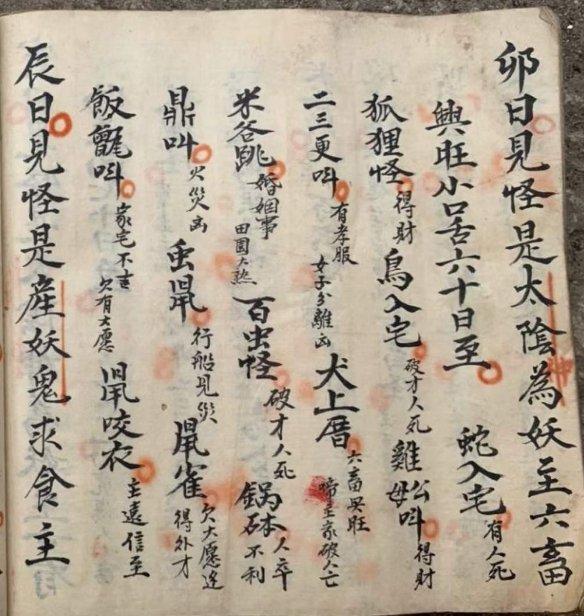 卯日見怪是太陰為妖主六畜
興旺小口舌六十日至 蛇入宅有人死
狐狸怪得財 鳥入宅破才人死 雞公母叫得財
二三更叫有孝服女子分離凶 犬上厝六畜興旺啼主家破人亡
米谷跳婚姻事田園大熟 百虫怪破才人死 鍋砵人卒不利
鼎叫火災凶 䖝鼡行船見災 鼡雀欠大愿送得外才
飯甑叫家宅不吉欠有大愿 鼡咬衣主遠信至
辰日見怪是産妖鬼求食主